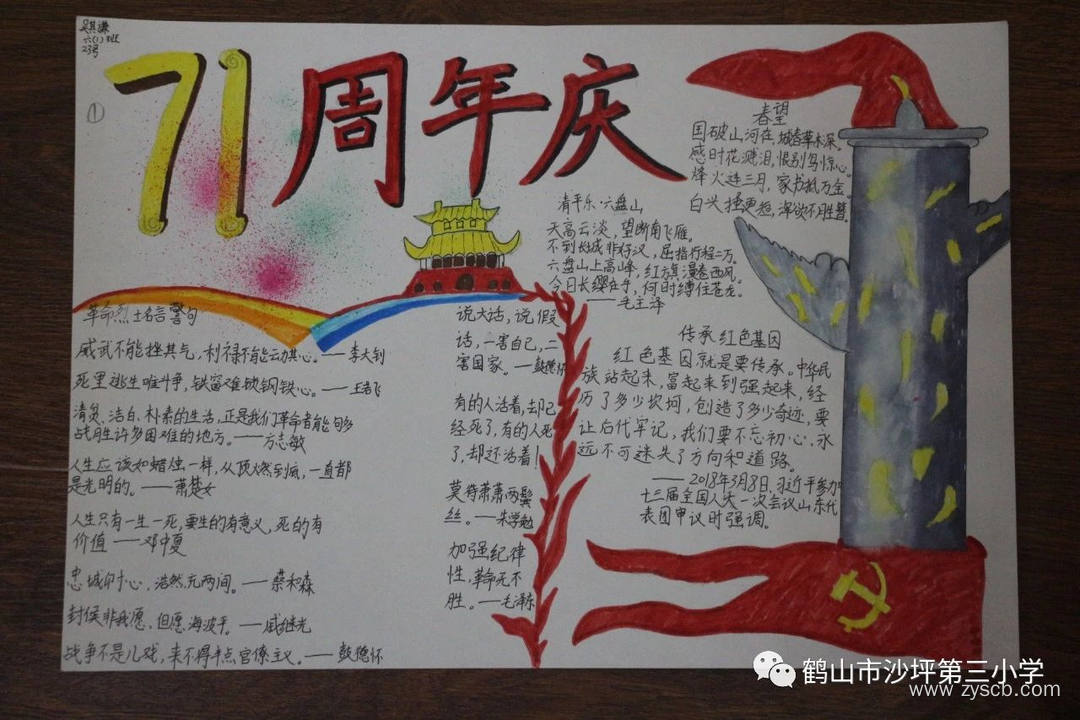 吴其谦
六(1)班
23号
①
71周年庆
春望
国破山河在,城春草木深。
感时花溅泪,恨别鸟惊心。
烽火连三月,家书抵万金。
白头搔更短,浑欲不胜簪。
清平乐·六盘山
天高云淡,望断南飞雁。
不到长城非好汉,屈指行程二万。
六盘山上高峰,红旗漫卷西风。
今日长缨在手,何时缚住苍龙。
——毛主泽
传承红色基因
红色基因就是要传承。中华民
族站起来,富起来到强起来,经
历了多少坎坷,创造了多少奇迹,要
让后代牢记,我们要不忘初心,永
远不可迷失了方向和道路。
——2018年3月8日,习近平参加
十三届全国人大一次会议山东代
表团审议时强调。
革命烈士名言警句
威武不能挫其气,利禄不能动其心。——李大钊
死里逃生唯斗争,铁窗难锁钢铁心。——王若飞
清贫、洁白、朴素的生活,正是我们革命者能够
战胜许多困难的地方。——方志敏
人生应该如蜡烛一样,从顶燃到底,一直都
是光明的。——萧楚女
人生只有一生一死,要生的有意义,死的有
价值——邓中夏
忠诚印寸心,浩然充两间。——蔡和森
封侯非我愿,但愿海波平。——戚继光
战争不是儿戏,来不得半点官僚主义。——彭德怀
说大话,说假
话,一害自己,二
害国家。——彭德怀
有的人活着,却已
经死了,有的人死
了,却还活着!
莫将萧萧两鬓
丝。——朱学勉
加强纪律
性,革命无不
胜。——毛泽东
鹤山市沙坪第三小学
www.zyscb.com